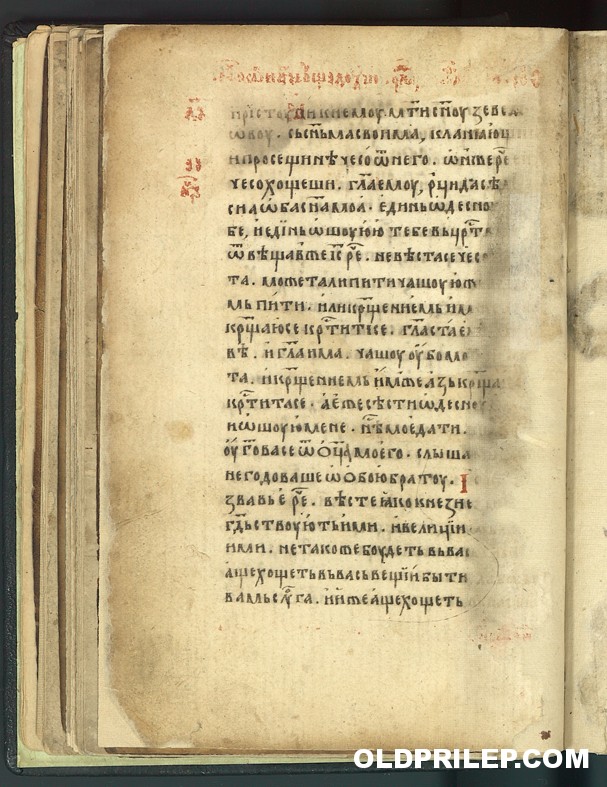 пристоупи к немоу м҃ти с҃ноу зеве
ѡвоу . сь сн҃ьма своима , кланꙗющи
и просещи нѣчесо ѿ него . ѡнже рⷱ҇е
чесо хощеши . гл҃а емоу , рци да се
сиа ѡба сн҃а моꙗ . единь ѡ десноу
бе , иединь ѡ шоуюю тебе вь црⷭ҇т
ѿвѣщавже іс҃ рⷱ҇е . не вѣста се чесо
та . можета ли пити чашоу юж
мь пити . или крⷭ҇щениемь им
крⷭ҇щаюсе крⷭ҇титисе . гл҃аста е
вѣ . и гл҃а има . чашоу оубо мо
та . и крⷭ҇щениемь имже азь крⷭ҇ща
крⷭ҇титасе . а еже сѣсти ѡ десноу
и ѡ шоуюю мене . нⷭ҇ѣ мое дати .
оуготовасе ѿ ѻц҃а моего . слыша
негодоваше ѡ ѻбою братоу . І
звавь е рⷱ҇е . вѣсте ꙗко кнези е
гⷭ҇дьствоують ими . и велиции
ими . не тако же боудеть вь вас
аще хощеть вь вась вещии быти
вамь слоуга . и иже аще хощеть
OLDPRILEP.COM